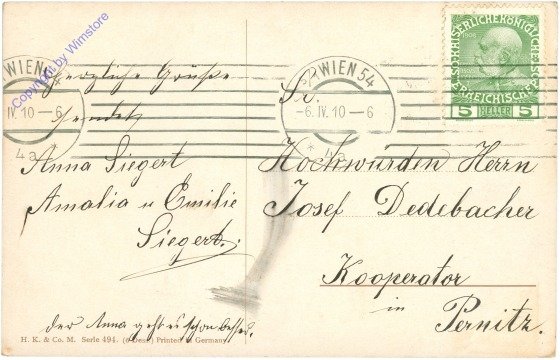 Herzliche Grüße
sendet
Anna Siegert
Amalia u Emilie
Siegert.
der Anna geht es schon besser.
H. K. & Co. M. Serie 494. (6 Dess.) Printed in Germany
Copyright by Wimstore
WIEN
IV. 10 – 6
4a
WIEN 54
6. IV. 10 – 6
KAISERLICHE KÖNIGLICHE
ÖSTERREICHISCHE
1908
5 HELLER 5
Sr.
Hochwürden Herrn
Josef Dedebacher
Kooperator
in
Pernitz.